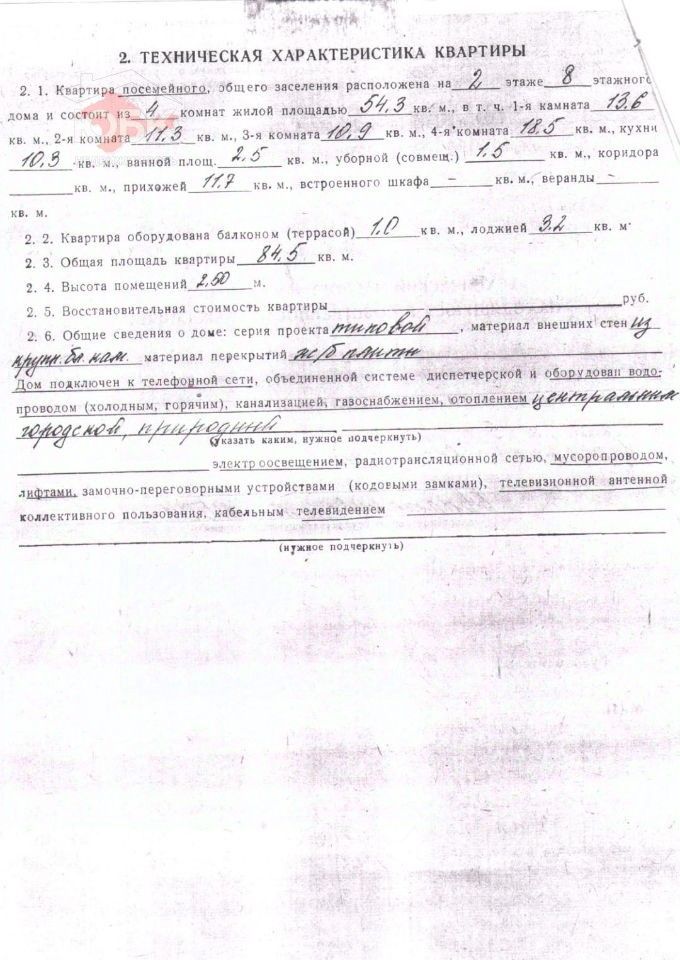 2. ТЕХНИЧЕСКАЯ ХАРАКТЕРИСТИКА КВАРТИРЫ
2. 1. Квартира посемейного, общего заселения расположена на 2 этаже 8 этажного
дома и состоит из 4 комнат жилой площадью 54.3 кв. м., в т. ч. 1-я камната 13.6
кв. м., 2-я комната 11.3 кв. м., 3-я комната 10.9 кв. м., 4-я комната 18.5 кв. м., кухни
10.3 кв. м., ванной площ. 2.5 кв. м., уборной (совмещ.) 1.5 кв. м., коридора
кв. м., прихожей 11.7 кв. м., встроенного шкафа – кв. м., веранды –
кв. м.
2. 2. Квартира оборудована балконом (террасой) 1.0 кв. м., лоджией 3.2 кв. м
2. 3. Общая площадь квартиры 84.5 кв. м.
2. 4. Высота помещений 2,50 м.
2. 5. Восстановительная стоимость квартиры руб.
2. 6. Общие сведения о доме: серия проекта типовой, материал внешних стен из
крупн. бл. кам. материал перекрытий ж/б плиты
Дом подключен к телефонной сети, объединенной системе диспетчерской и оборудован водо-
проводом (холодным, горячим), канализацией, газоснабжением, отоплением центральным
городской, природный
(указать каким, нужное подчеркнуть)
электроосвещением, радиотрансляционной сетью, мусоропроводом,
лифтами, замочно-переговорными устройствами (кодовыми замками), телевизионной антенной
коллективного пользования, кабельным телевидением
(нужное подчеркнуть)